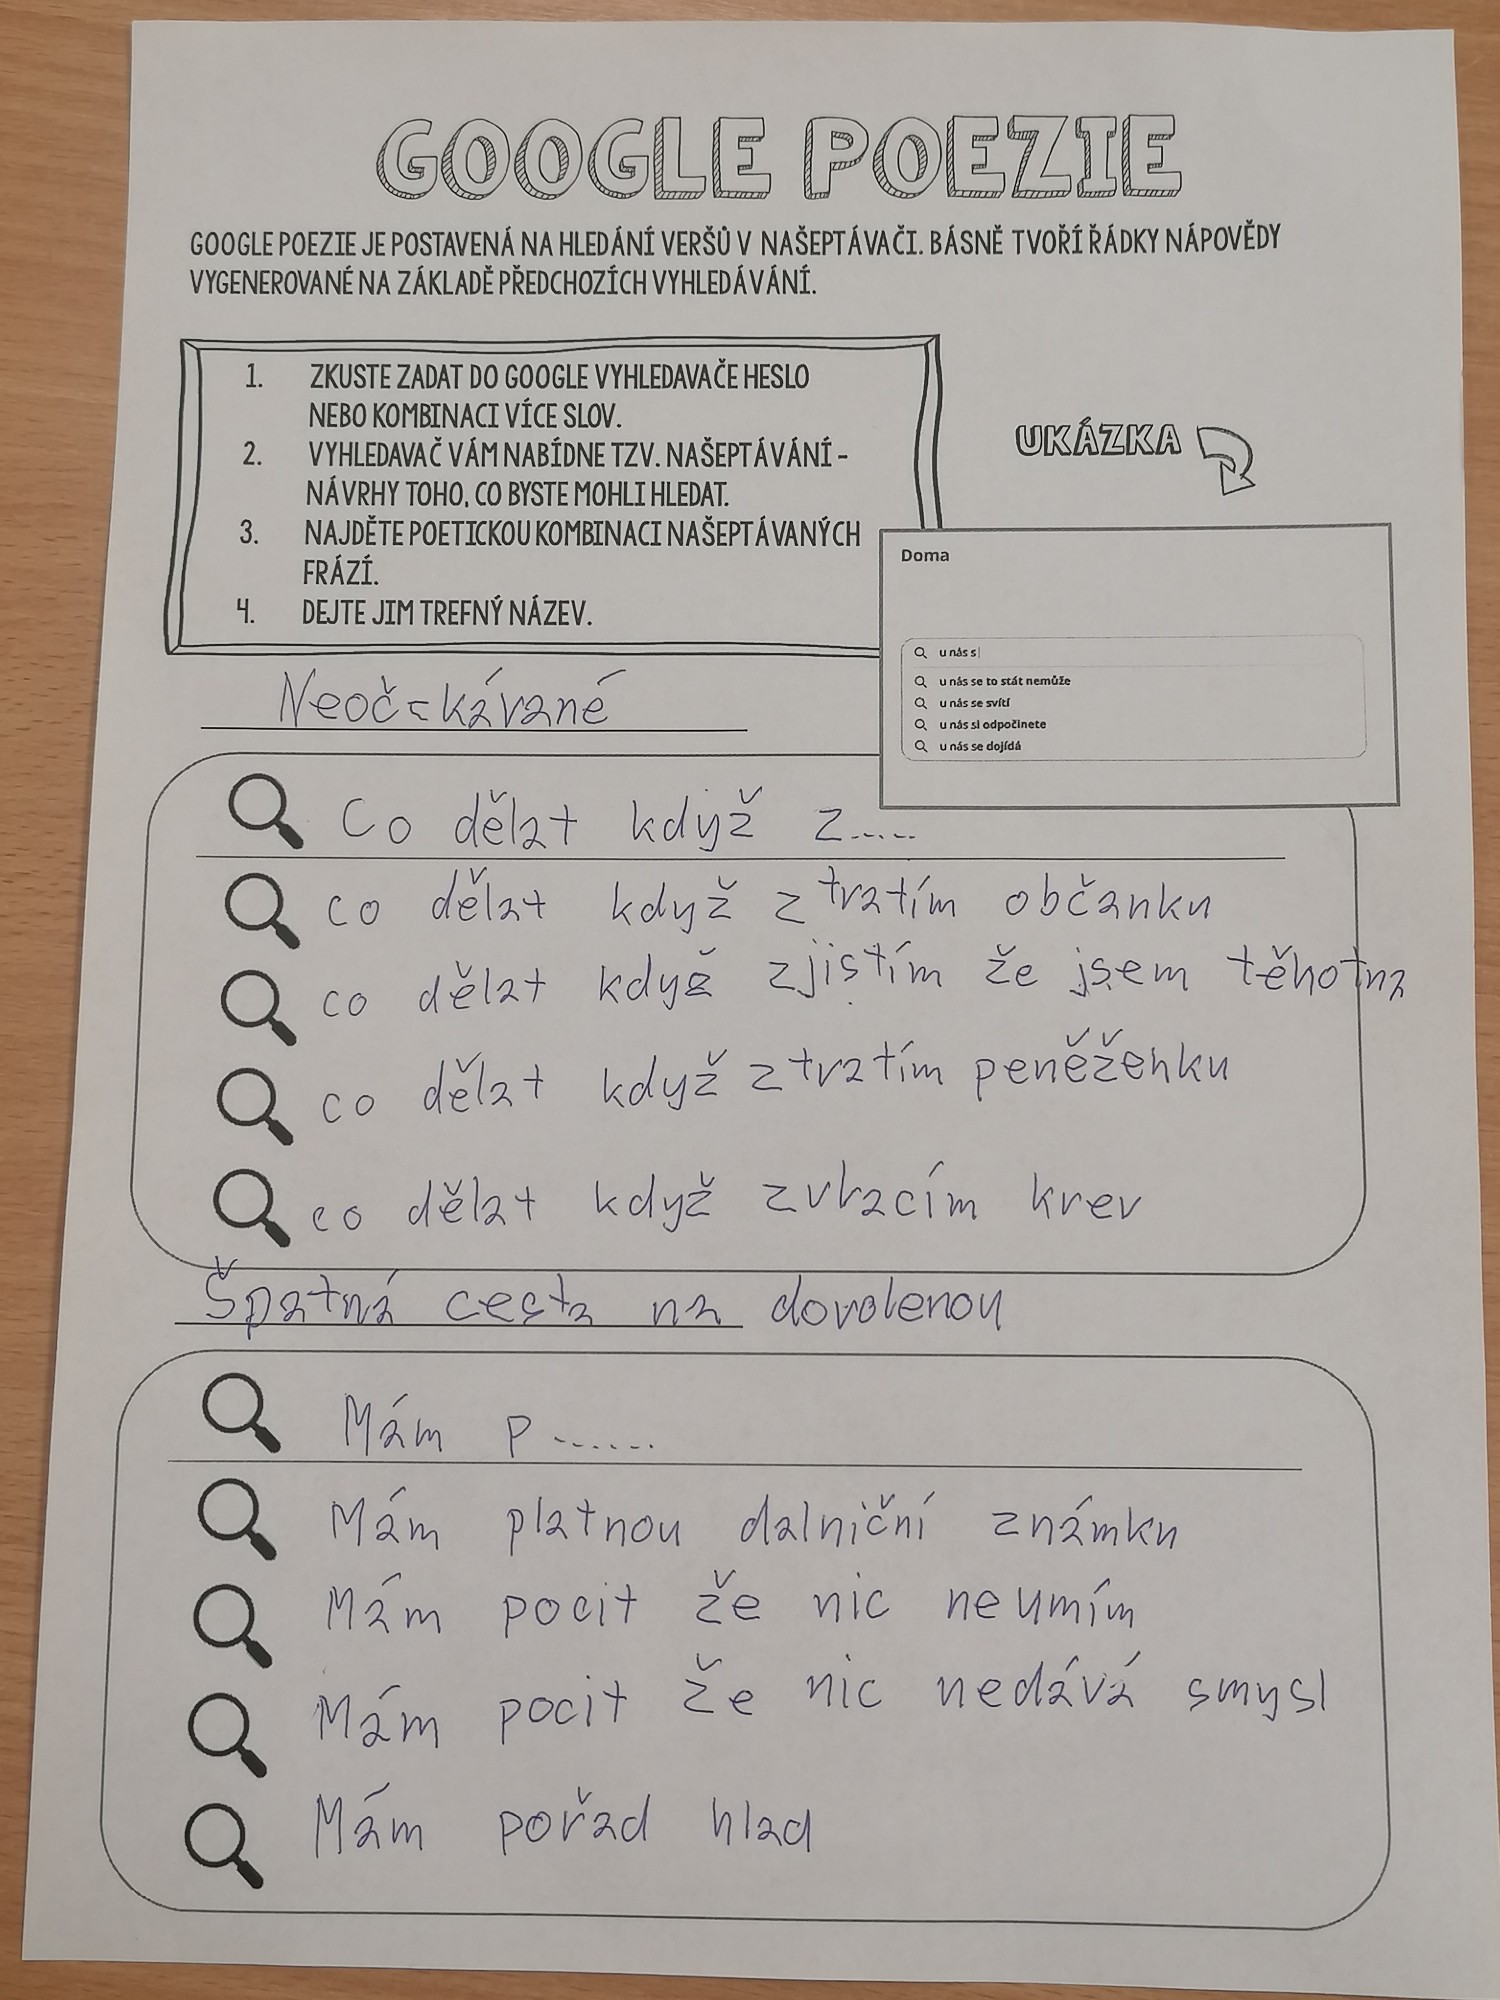 GOOGLE POEZIE
GOOGLE POEZIE JE POSTAVENÁ NA HLEDÁNÍ VERŠŮ V NAŠEPTÁVAČI. BÁSNĚ TVOŘÍ ŘÁDKY NÁPOVĚDY
VYGENEROVANÉ NA ZÁKLADĚ PŘEDCHOZÍCH VYHLEDÁVÁNÍ.
1. ZKUSTE ZADAT DO GOOGLE VYHLEDAVAČE HESLO
NEBO KOMBINACI VÍCE SLOV.
2. VYHLEDAVAČ VÁM NABÍDNE TZV. NAŠEPTÁVÁNÍ -
NÁVRHY TOHO, CO BYSTE MOHLI HLEDAT.
3. NAJDĚTE POETICKOU KOMBINACI NAŠEPTÁVANÝCH
FRÁZÍ.
4. DEJTE JIM TREFNÝ NÁZEV.
UKÁZKA
Doma
u nás s
u nás se to stát nemůže
u nás se svítí
u nás si odpočinete
u nás se dojídá
Neočekávané
Co dělat když z.....
co dělat když ztratím občanku
co dělat když zjistím že jsem těhotna
co dělat když ztratím peněženku
co dělat když zvracím krev
Špatná cesta na dovolenou
Mám p......
Mám platnou dalniční známku
Mám pocit že nic neumím
Mám pocit že nic nedává smysl
Mám pořad hlad